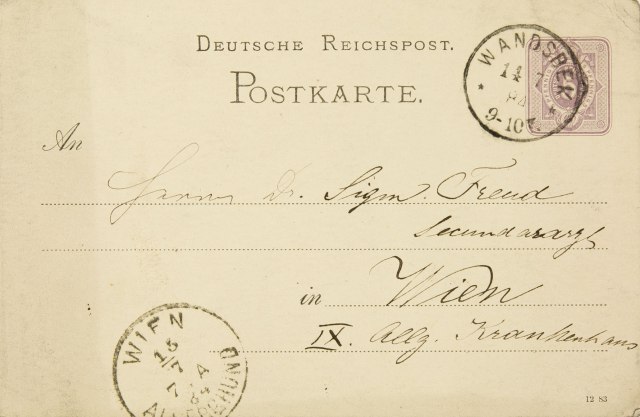 DEUTSCHE REICHSPOST.
POSTKARTE.
WANDSBEK
14 7
84
9-10 V.
An
Herrn Dr. Sigm. Freud
Secundararzt
in Wien
IX. Allg. Krankenhaus
WIEN
15
7
7 A
84
12 83